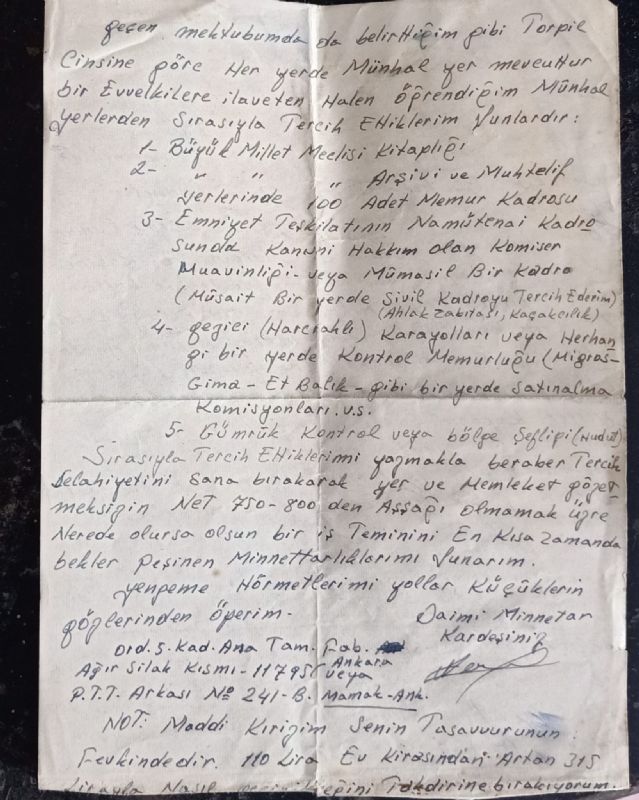 geçen mektubumda da belirttiğim gibi Torpil
Cinsine göre Her yerde Münhal yer mevcuttur
bir Evvelkilere ilaveten Halen Öğrendiğim Münhal
yerlerden Sırasıyla Tercih Ettiklerim Şunlardır:
1- Büyük Millet Meclisi Kitaplığı
2- " " " Arşivi ve Muhtelif
yerlerinde 100 Adet Memur Kadrosu
3- Emniyet Teşkilatının Namütenai Kadro
sunda Kanuni Hakkım olan Komiser
Muavinliği veya Mümasil Bir Kadro
(Müsait Bir yerde Sivil Kadroyu Tercih Ederim)
(Ahlak Zabıtası, Kaçakcılık)
4- geçici (Harcırahlı) Karayolları veya Herhan
gi bir yerde Kontrol Memurluğu (Migros-
Gima - Et Balık - gibi bir yerde satınalma
Komisyonları. v.s.
5- Gümrük Kontrol veya bölge Şefliği (Hudut)
Sırasıyla Tercih Ettiklerimi yazmakla beraber Tercih
Selahiyetini Sana bırakarak yer ve Memleket gözet
meksizin Net 750-800 den Aşşağı olmamak Üzre
Nerede olursa olsun bir iş Teminini En Kısa Zamanda
bekler Peşinen Minnettarlıklarımı Sunarım.
yengeme Hörmetlerimi yollar Küçüklerin
gözlerinden Öperim.
Daimi Minnetar
Kardeşiniz
Ord. S. Kad. Ana Tam. Fab.
Ağır Silak Kısmı - 11795 Ankara
veya
P.T.T. Arkası No 241-B. Mamak-Ank.
NOT: Maddi Krizim Senin Tasavvurunun
Fevkindedir. 110 Lira Ev Kirasından Artan 315
Lirayla Nasıl Takdirine bırakıyorum.